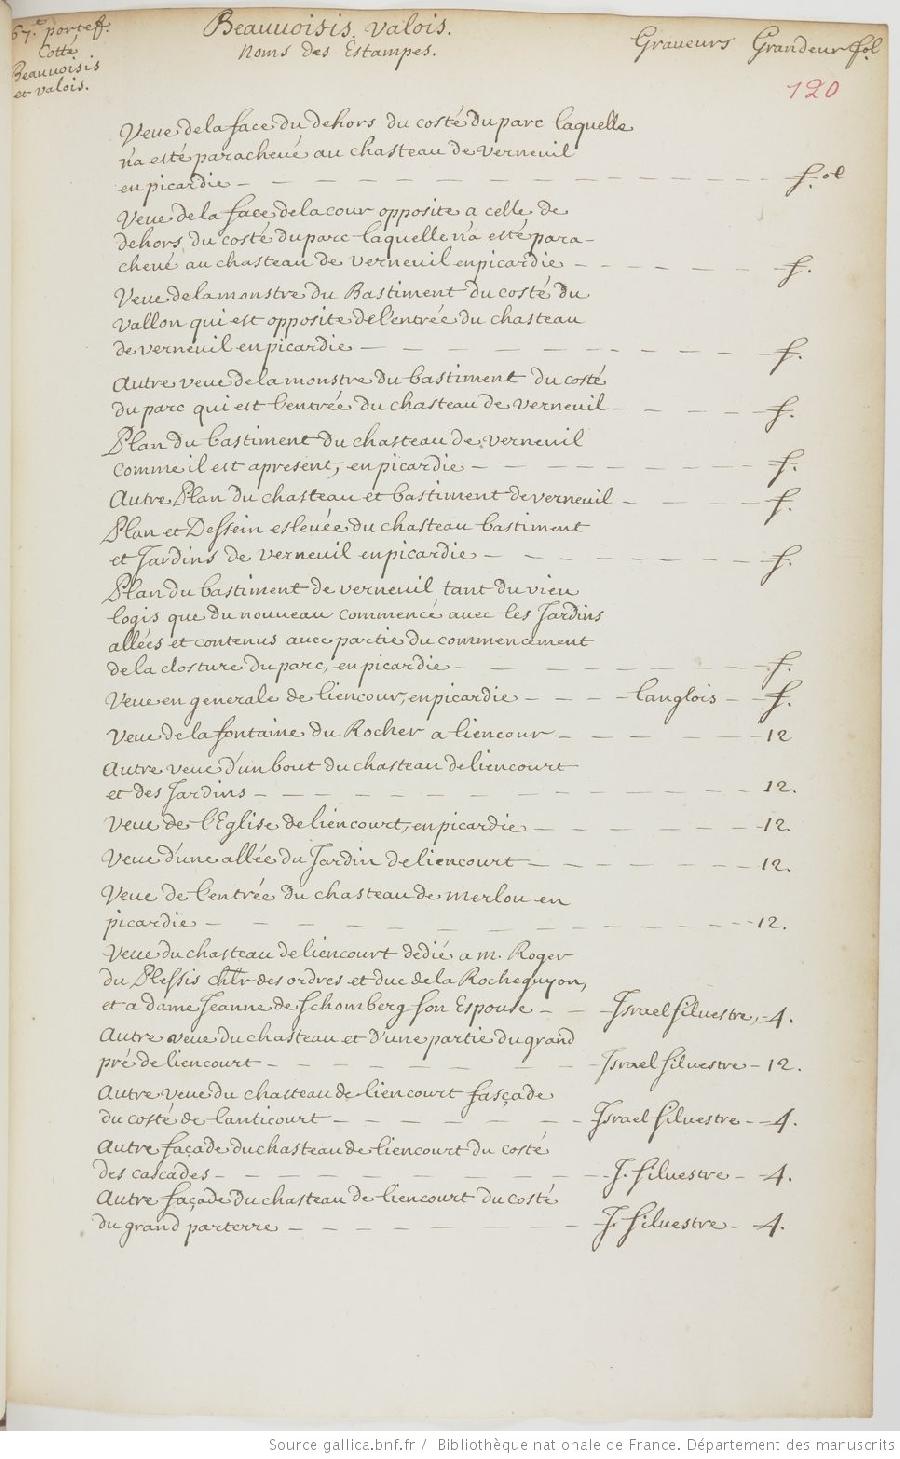 67.e portef.
Cotté
Beauvoisis
et valois.
Beauvoisis. Valois.
Noms des Estampes.
Graveurs Grandeur fol
120
Veue de la face du dehors du costé du parc laquelle
n'a esté parachevé au chasteau de verneuil
en picardie — f.ol
Veue de la face de la cour opposite a celle de
dehors du costé du parc laquelle n'a esté para-
chevé au chasteau de verneuil en picardie — f.
Veue de la monstre du Bastiment du costé du
vallon qui est opposite de l'entrée du chasteau
de verneuil en picardie — f.
Autre veue de la monstre du bastiment du costé
du parc qui est l'entrée du chasteau de verneuil — f.
Plan du bastiment du chasteau de verneuil
comme il est apresent, en picardie — f.
Autre Plan du chasteau et bastiment de verneuil — f.
Plan et Dessein eslevée du chasteau bastiment
et Jardins de verneuil en picardie — f.
Plan du bastiment de verneuil tant du vieu
logis que du nouveau commencé avec les Jardins
allées et contenus avec partie du commencament
de la closture du parc, en picardie — f.
Veue en generale de liencour, en picardie — langlois — f.
Veue de la fontaine du Rocher a liencour — 12
Autre veue d'un bout du chasteau de liencourt
et des Jardins — 12.
Veue de l'Eglise de liencourt, en picardie — 12.
Veue d'une allée du Jardin de liencourt — 12.
Veue de l'entrée du chasteau de merlou en
picardie — 12.
Veue du chasteau de liencourt dedié a m. Roger
du Plessis chlr des ordres et duc de la Rocheguyon,
et a dame Jeanne de Schomberg son Espouse — Israel silvestre, — 4.
Autre veue du chasteau et d'une partie du grand
pré de liencourt — Israel silvestre — 12.
Autre veue du chasteau de liencourt fasçade
du costé de lanticourt — Israel silvestre — 4.
Autre façade du chasteau de liencourt du costé
des cascades — J. silvestre — 4.
Autre façade du chasteau de liencourt du costé
du grand parterre — J. silvestre — 4.
Source gallica.bnf.fr / Bibliothèque nationale de France. Département des manuscrits